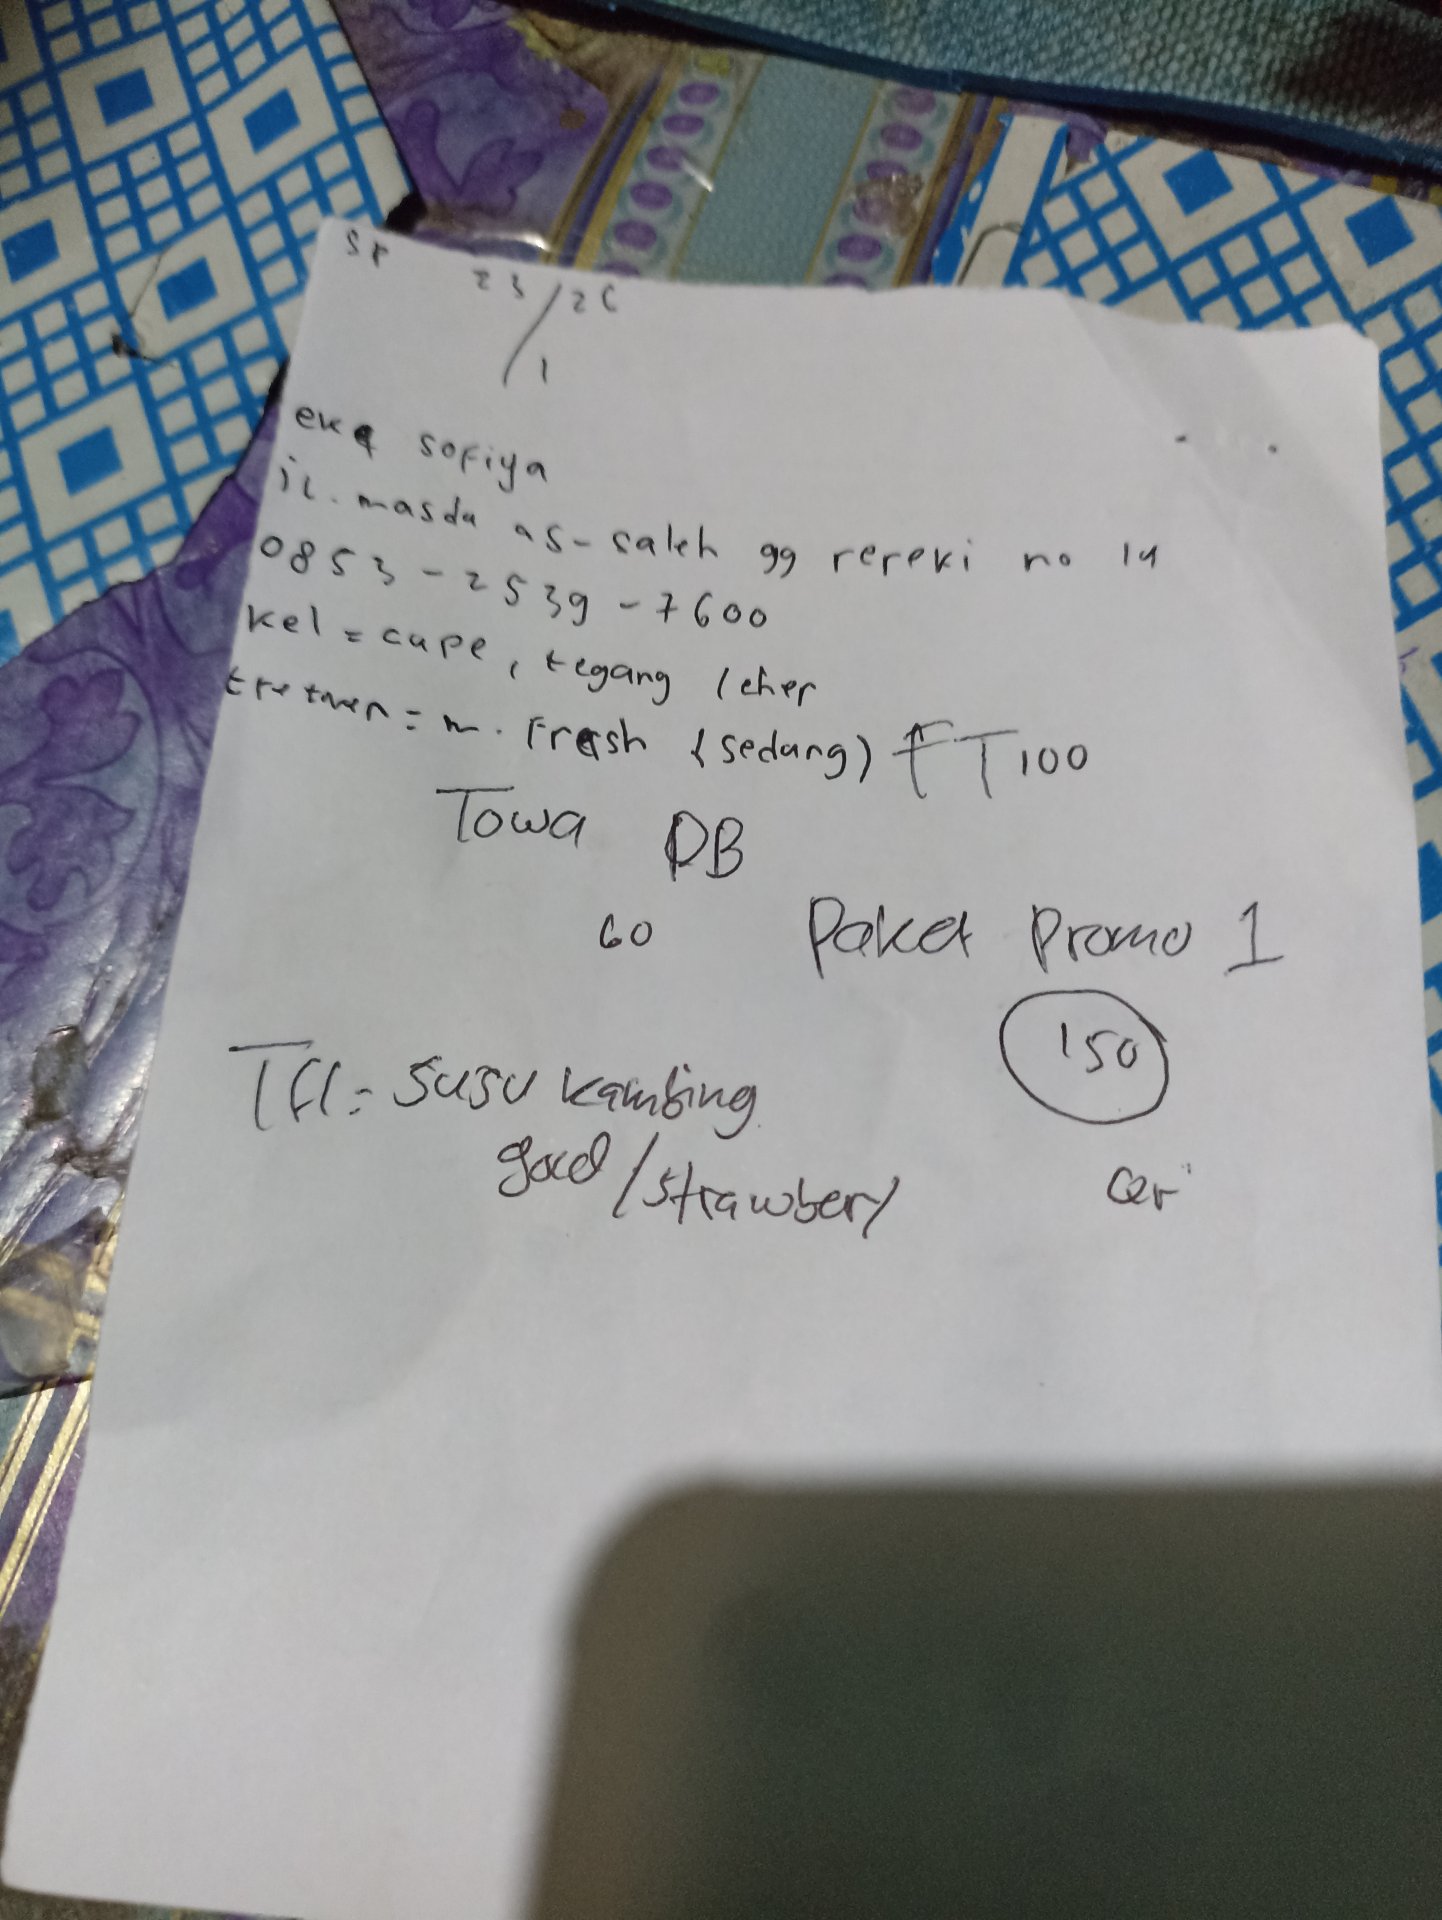 SP 23/26
1
eka sofiya
jl. masda as-saleh gg rereki no 14
0853-2539-7600
kel = cape, tegang leher
tretmen = m. Fresh (sedang) FT 100
Towa DB
60 Paket Promo 1
150
Tfl = susu kambing
goed/strawbery
Cer